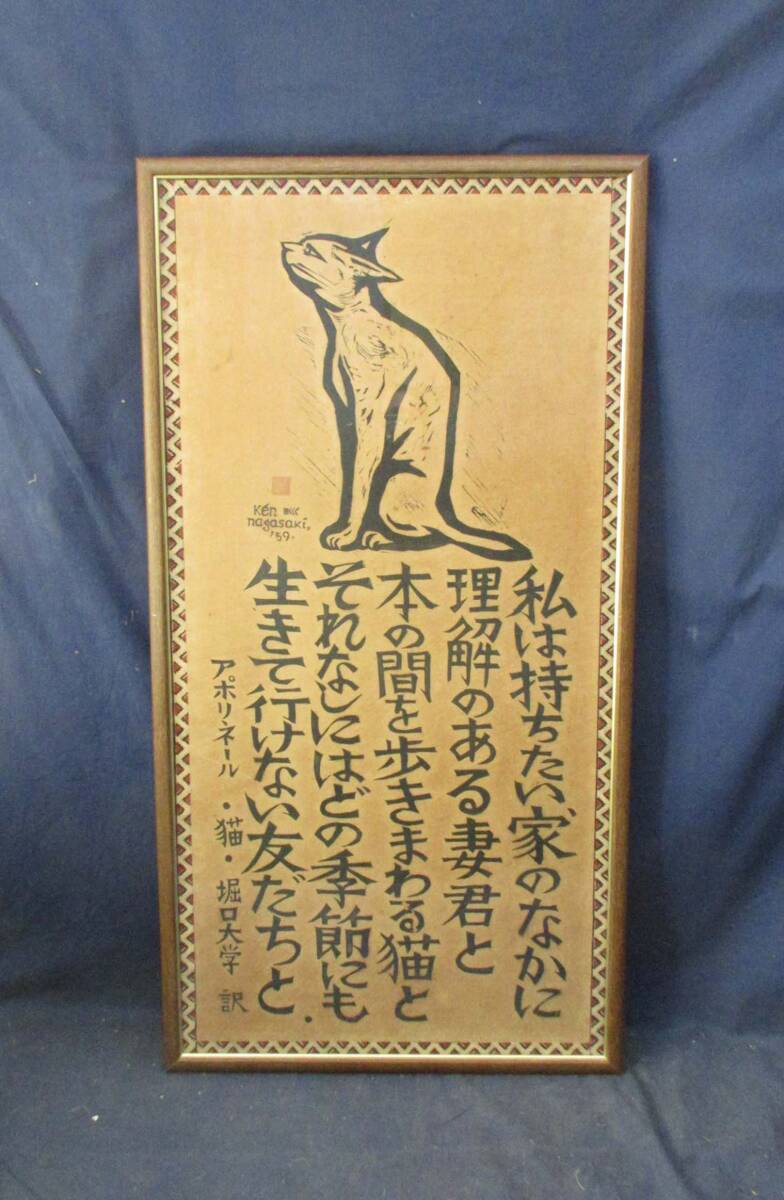 私は持ちたい、家のなかに
理解のある妻君と
本の間を歩きまわる猫と
それなしにはどの季節にも
生きて行けない友だちと.
アポリネール・猫・堀口大学 訳
Ken
nagasaki.
'59.